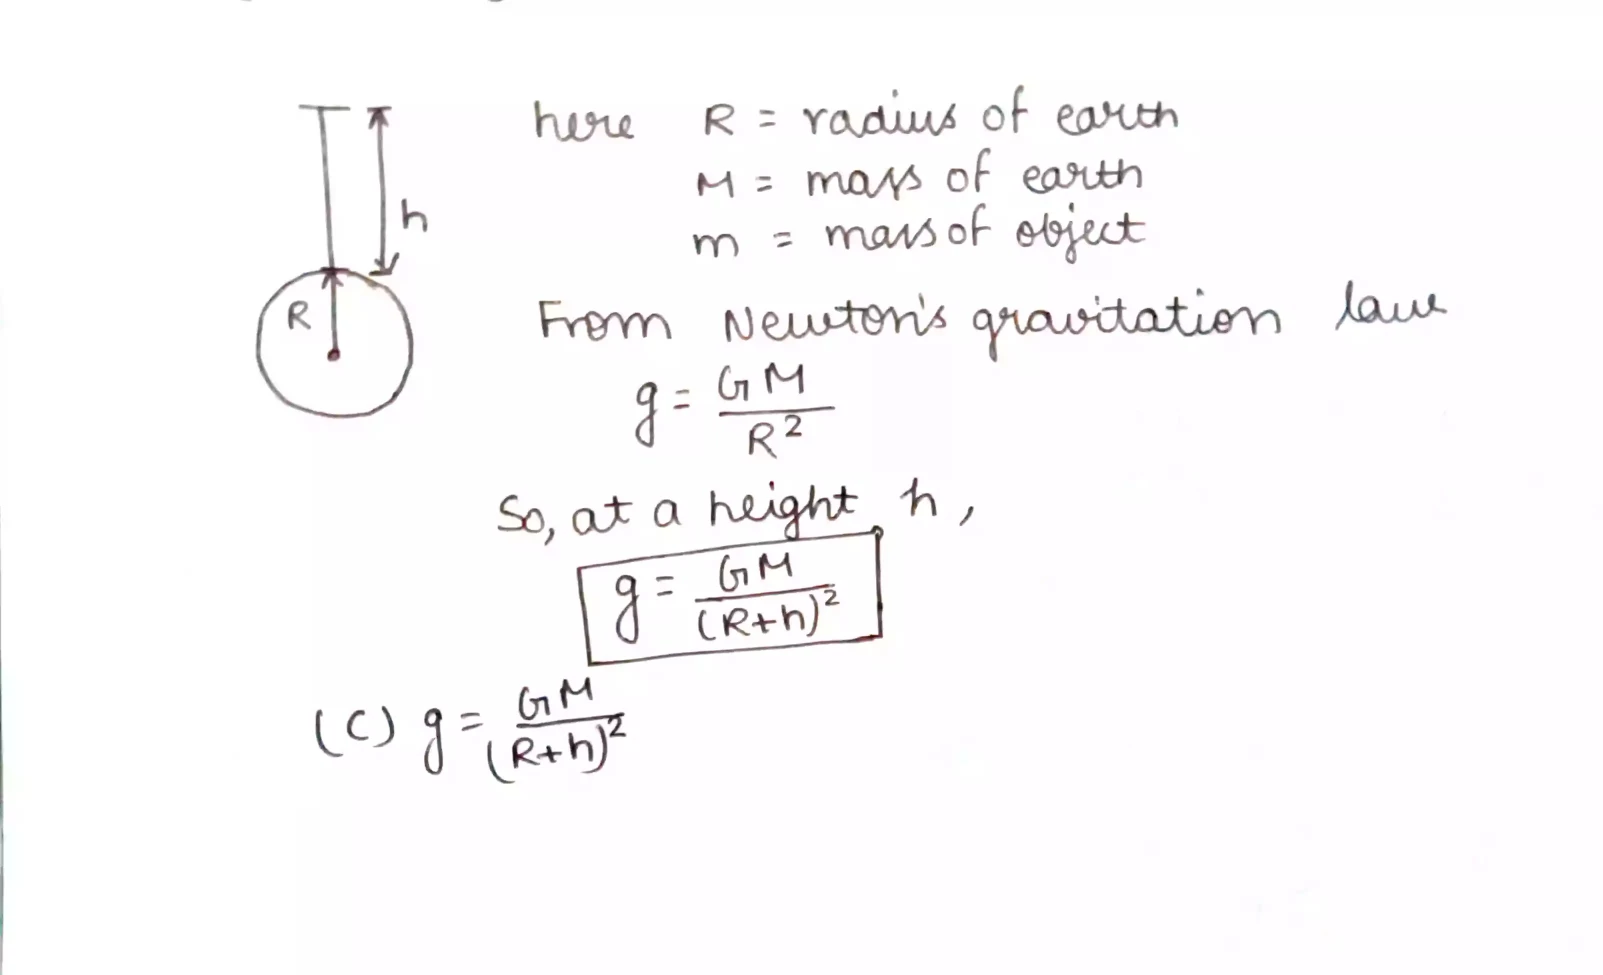 here R = radius of earth
M = mass of earth
m = mass of object
h
R
From Newton's gravitation law
g = GM / R²
So, at a height h,
g = GM / (R+h)²
(C) g = GM / (R+h)²